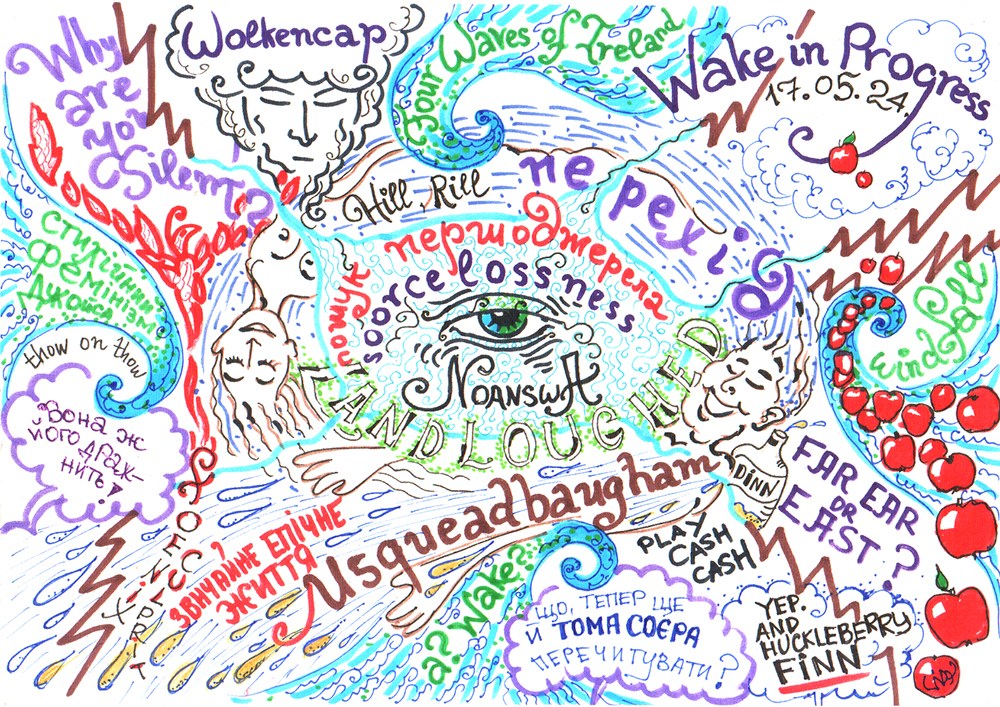 Why
are
you
Silent?
Wolkencap
Four Waves of Ireland
Wake in Progress
17.05.24
Hill, Rill
не рехід
пошук першоджерела
soorcelossness
NOANSWA
LANDLOUGHED
стихійний
фемінізм
Джойса
thow on thow
"Вона ж
його драж-
нить!
windfall
FOENiX
CULPRIT
ЗВИЧАЙНЕ ЕПІЧНЕ
ЖИТТЯ
Usqueadbaugham
DINN
PLAY
CASH
CASH
FAR EAR
OR
EAST?
а? Wake?
ЩО, ТЕПЕР ЩЕ
Й ТОМА СОЄРА
ПЕРЕЧИТУВАТИ?
YEP.
AND
HUCKLEBERRY
FiNN